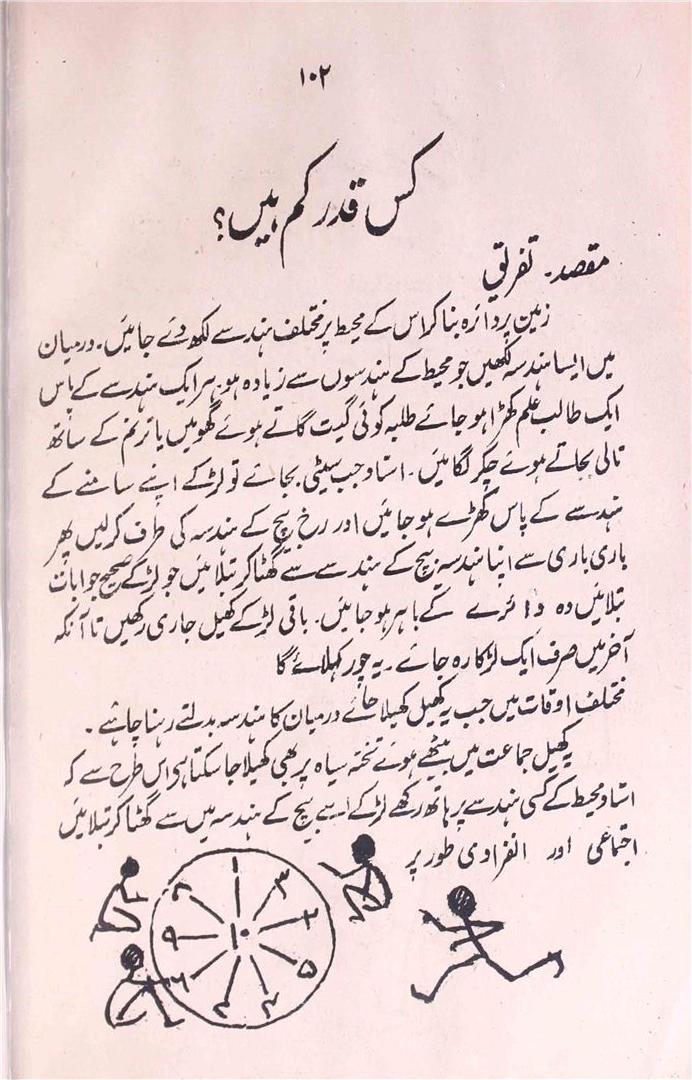 ۱۰۲
کس قدر کم ہیں؟
مقصد۔ تفریق
زمین پر دائرہ بنا کر اس کے محیط پر مختلف ہندسے لکھ دئے جائیں۔ درمیان
میں ایسا ہندسہ لکھیں جو محیط کے ہندسوں سے زیادہ ہو۔ ہر ایک ہندسے کے پاس
ایک طالب علم کھڑا ہو جائے طلبہ کوئی گیت گاتے ہوئے گھومیں یا ترنم کے ساتھ
تالی بجاتے ہوئے چکر لگائیں۔ استاد جب سیٹی بجائے تو لڑکے اپنے سامنے کے
ہندسے کے پاس کھڑے ہو جائیں اور رخ بیچ کے ہندسہ کی طرف کرلیں پھر
باری باری سے اپنا ہندسہ بیچ کے ہندسے سے گھٹا کر بتلائیں جو لڑکے صحیح جوابات
بتلائیں وہ دائرے کے باہر ہو جائیں۔ باقی لڑکے کھیل جاری رکھیں تا آنکہ
آخر میں صرف ایک لڑکا رہ جائے۔ یہ چور کہلائے گا
مختلف اوقات میں جب یہ کھیل کھیلا جائے درمیان کا ہندسہ بدلتے رہنا چاہئے۔
یہ کھیل جماعت میں بیٹھے ہوئے تختہ سیاہ پر بھی کھیلا جا سکتا ہے اس طرح سے کہ
استاد محیط کے کسی ہندسے پر ہاتھ رکھے لڑکے اسے بیچ کے ہندسہ میں سے گھٹا کر بتلائیں
اجتماعی اور انفرادی طور پر
۱
۳
۲
۵
۹
۱۰